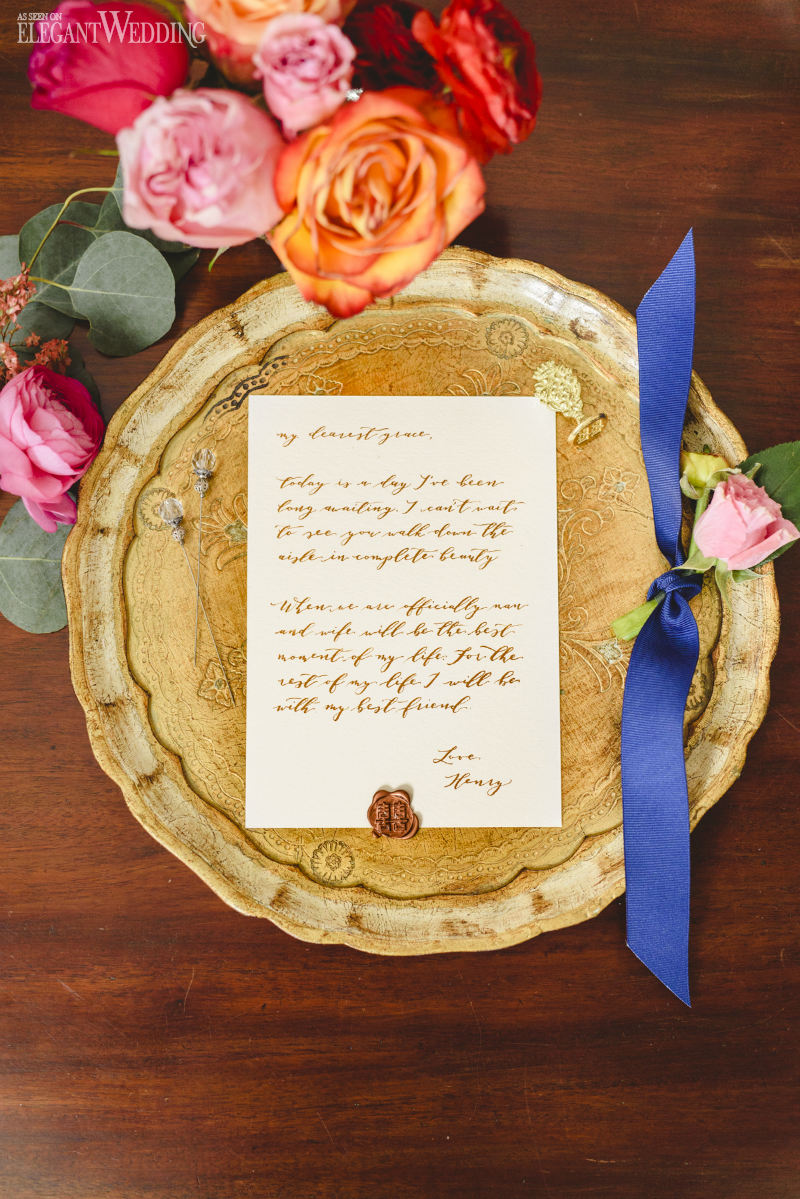 AS SEEN ON
ELEGANTWEDDING
my dearest grace,
today is a day I've been
long awaiting. I can't wait
to see you walk down the
aisle in complete beauty
When we are officially man
and wife will be the best
moment of my life. For the
rest of my life I will be
with my best friend.
Love,
Henry
囍